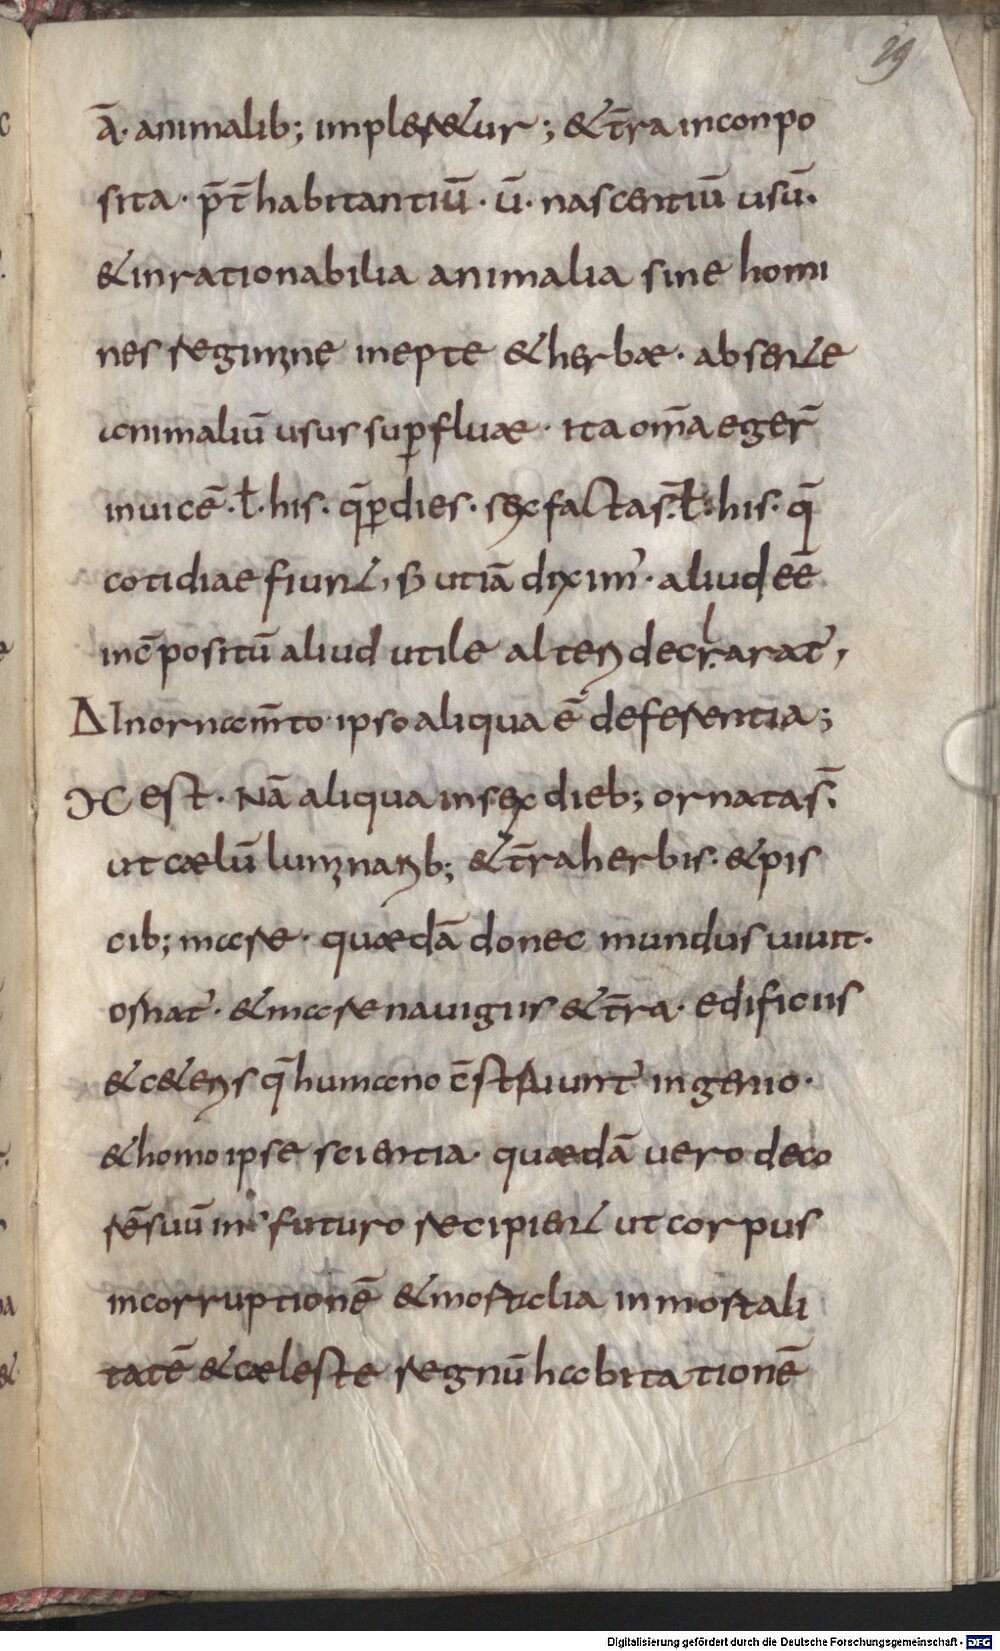 29
ā· animalib; impleretur; & t̄ra inconpo
sita· p̄t̄ habitantiū· ū· nascentiū usū·
& inrationabilia animalia sine homi
nes regimine inepte & herbae· absente
animaliū usus suꝑfluae· ita om̄a eger̄
inuicē· ł· his· q̄ ꝑ dies· sex facta s̄· ł· his· q̄
cotidiae fiunt, s; ut iā dixim'· aliud eē
inc̄positū aliud utile alteri declarat',
Δ In ornam̄to ipso aliqua ē deferentia;
est· Nā aliqua in sex dieb; ornata s̄·
ut caelū luminarib; & t̄ra herbis· & pis
cib; mare· quaedā donec mundus uiuit·
ornat'· & mare nauigiis & t̄ra· edificiis
& ceteris q̄ humano c̄struunt' ingenio·
& homo ipse scientia· quaedā vero deco
rē suū in futuro recipient ut corpus
incorruptionē & mortalia inmortali
tatē & caeleste regnū habitationē
Digitalisierung gefördert durch die Deutsche Forschungsgemeinschaft - DFG